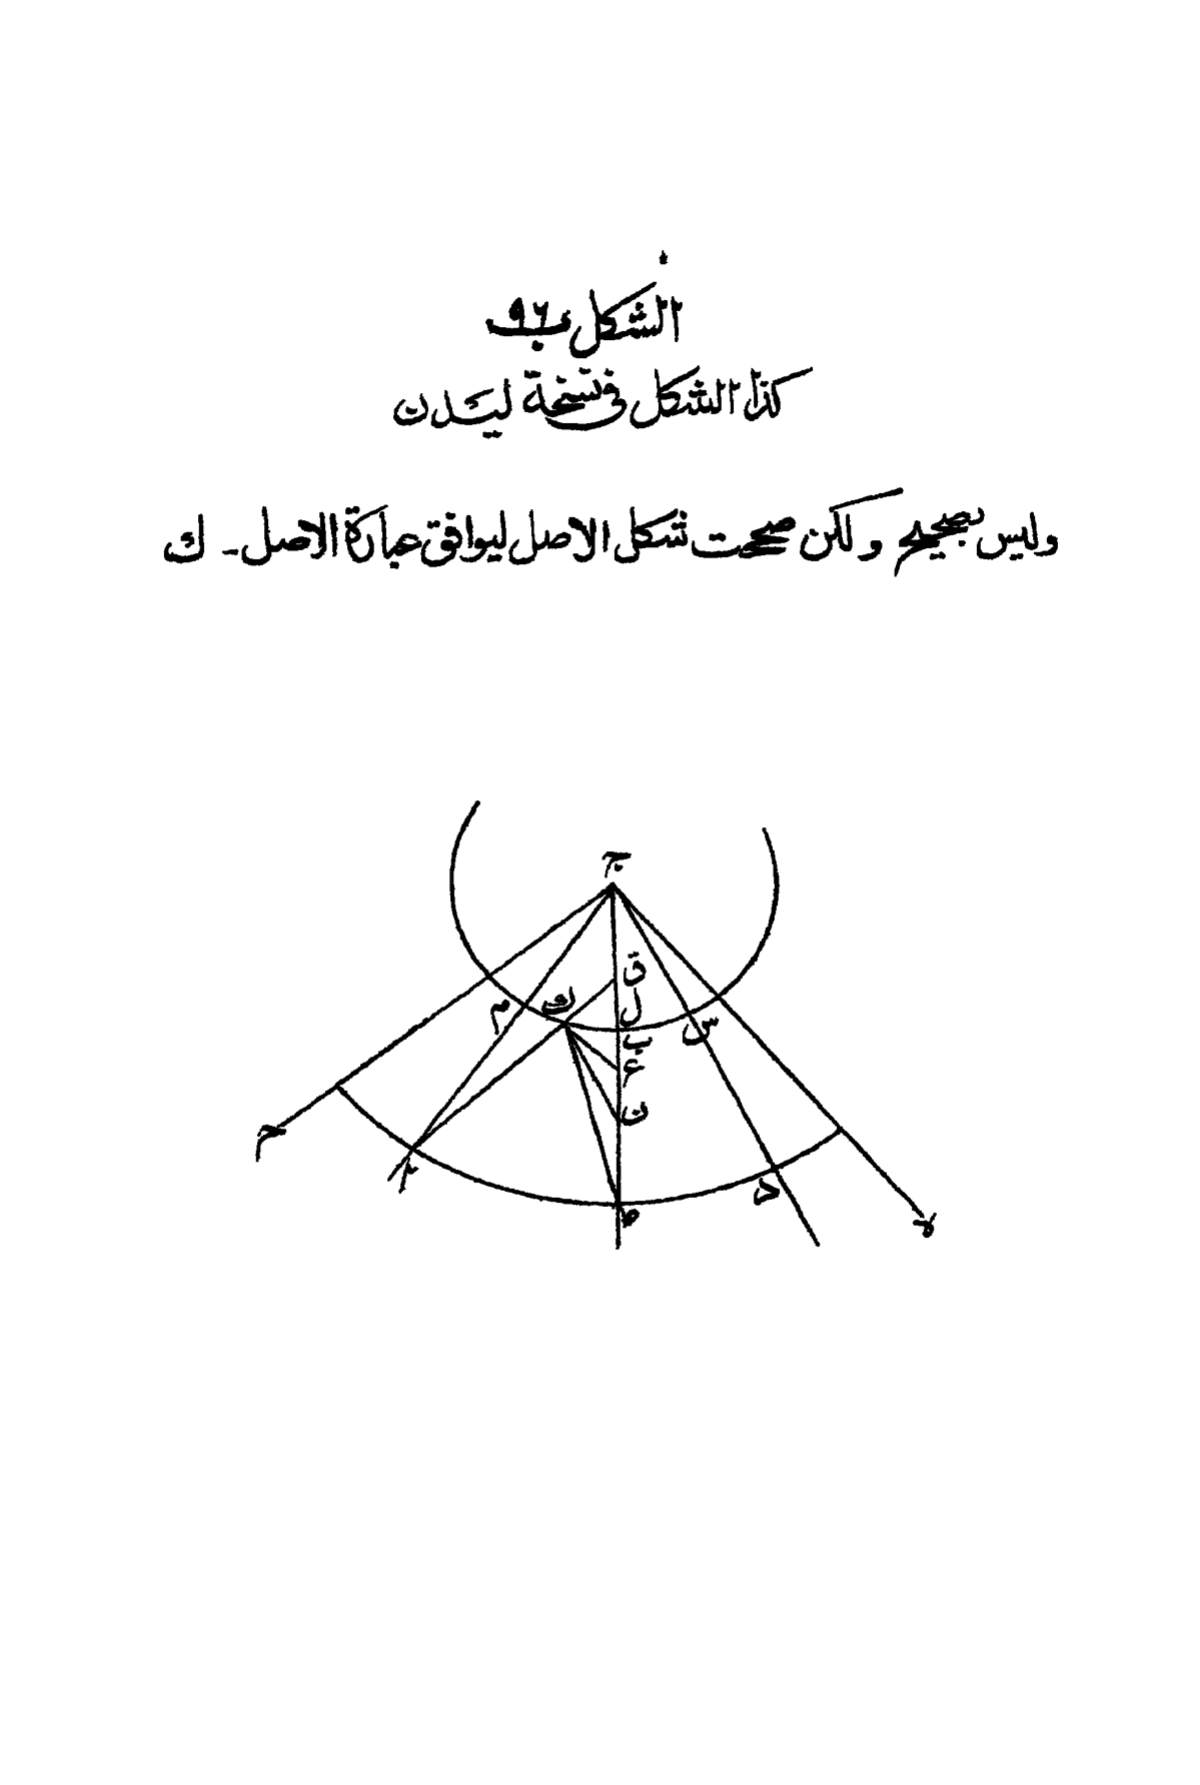 الشكل ٩٦ ب
كذا الشكل فى نسخة ليدن
وليس بصحيح ولكن صححت شكل الاصل ليوافق عبارة الاصل ـ ك
ج
ق
ل
ك
م
س
ب
ع
ن
ح
ر
د
ط
ه